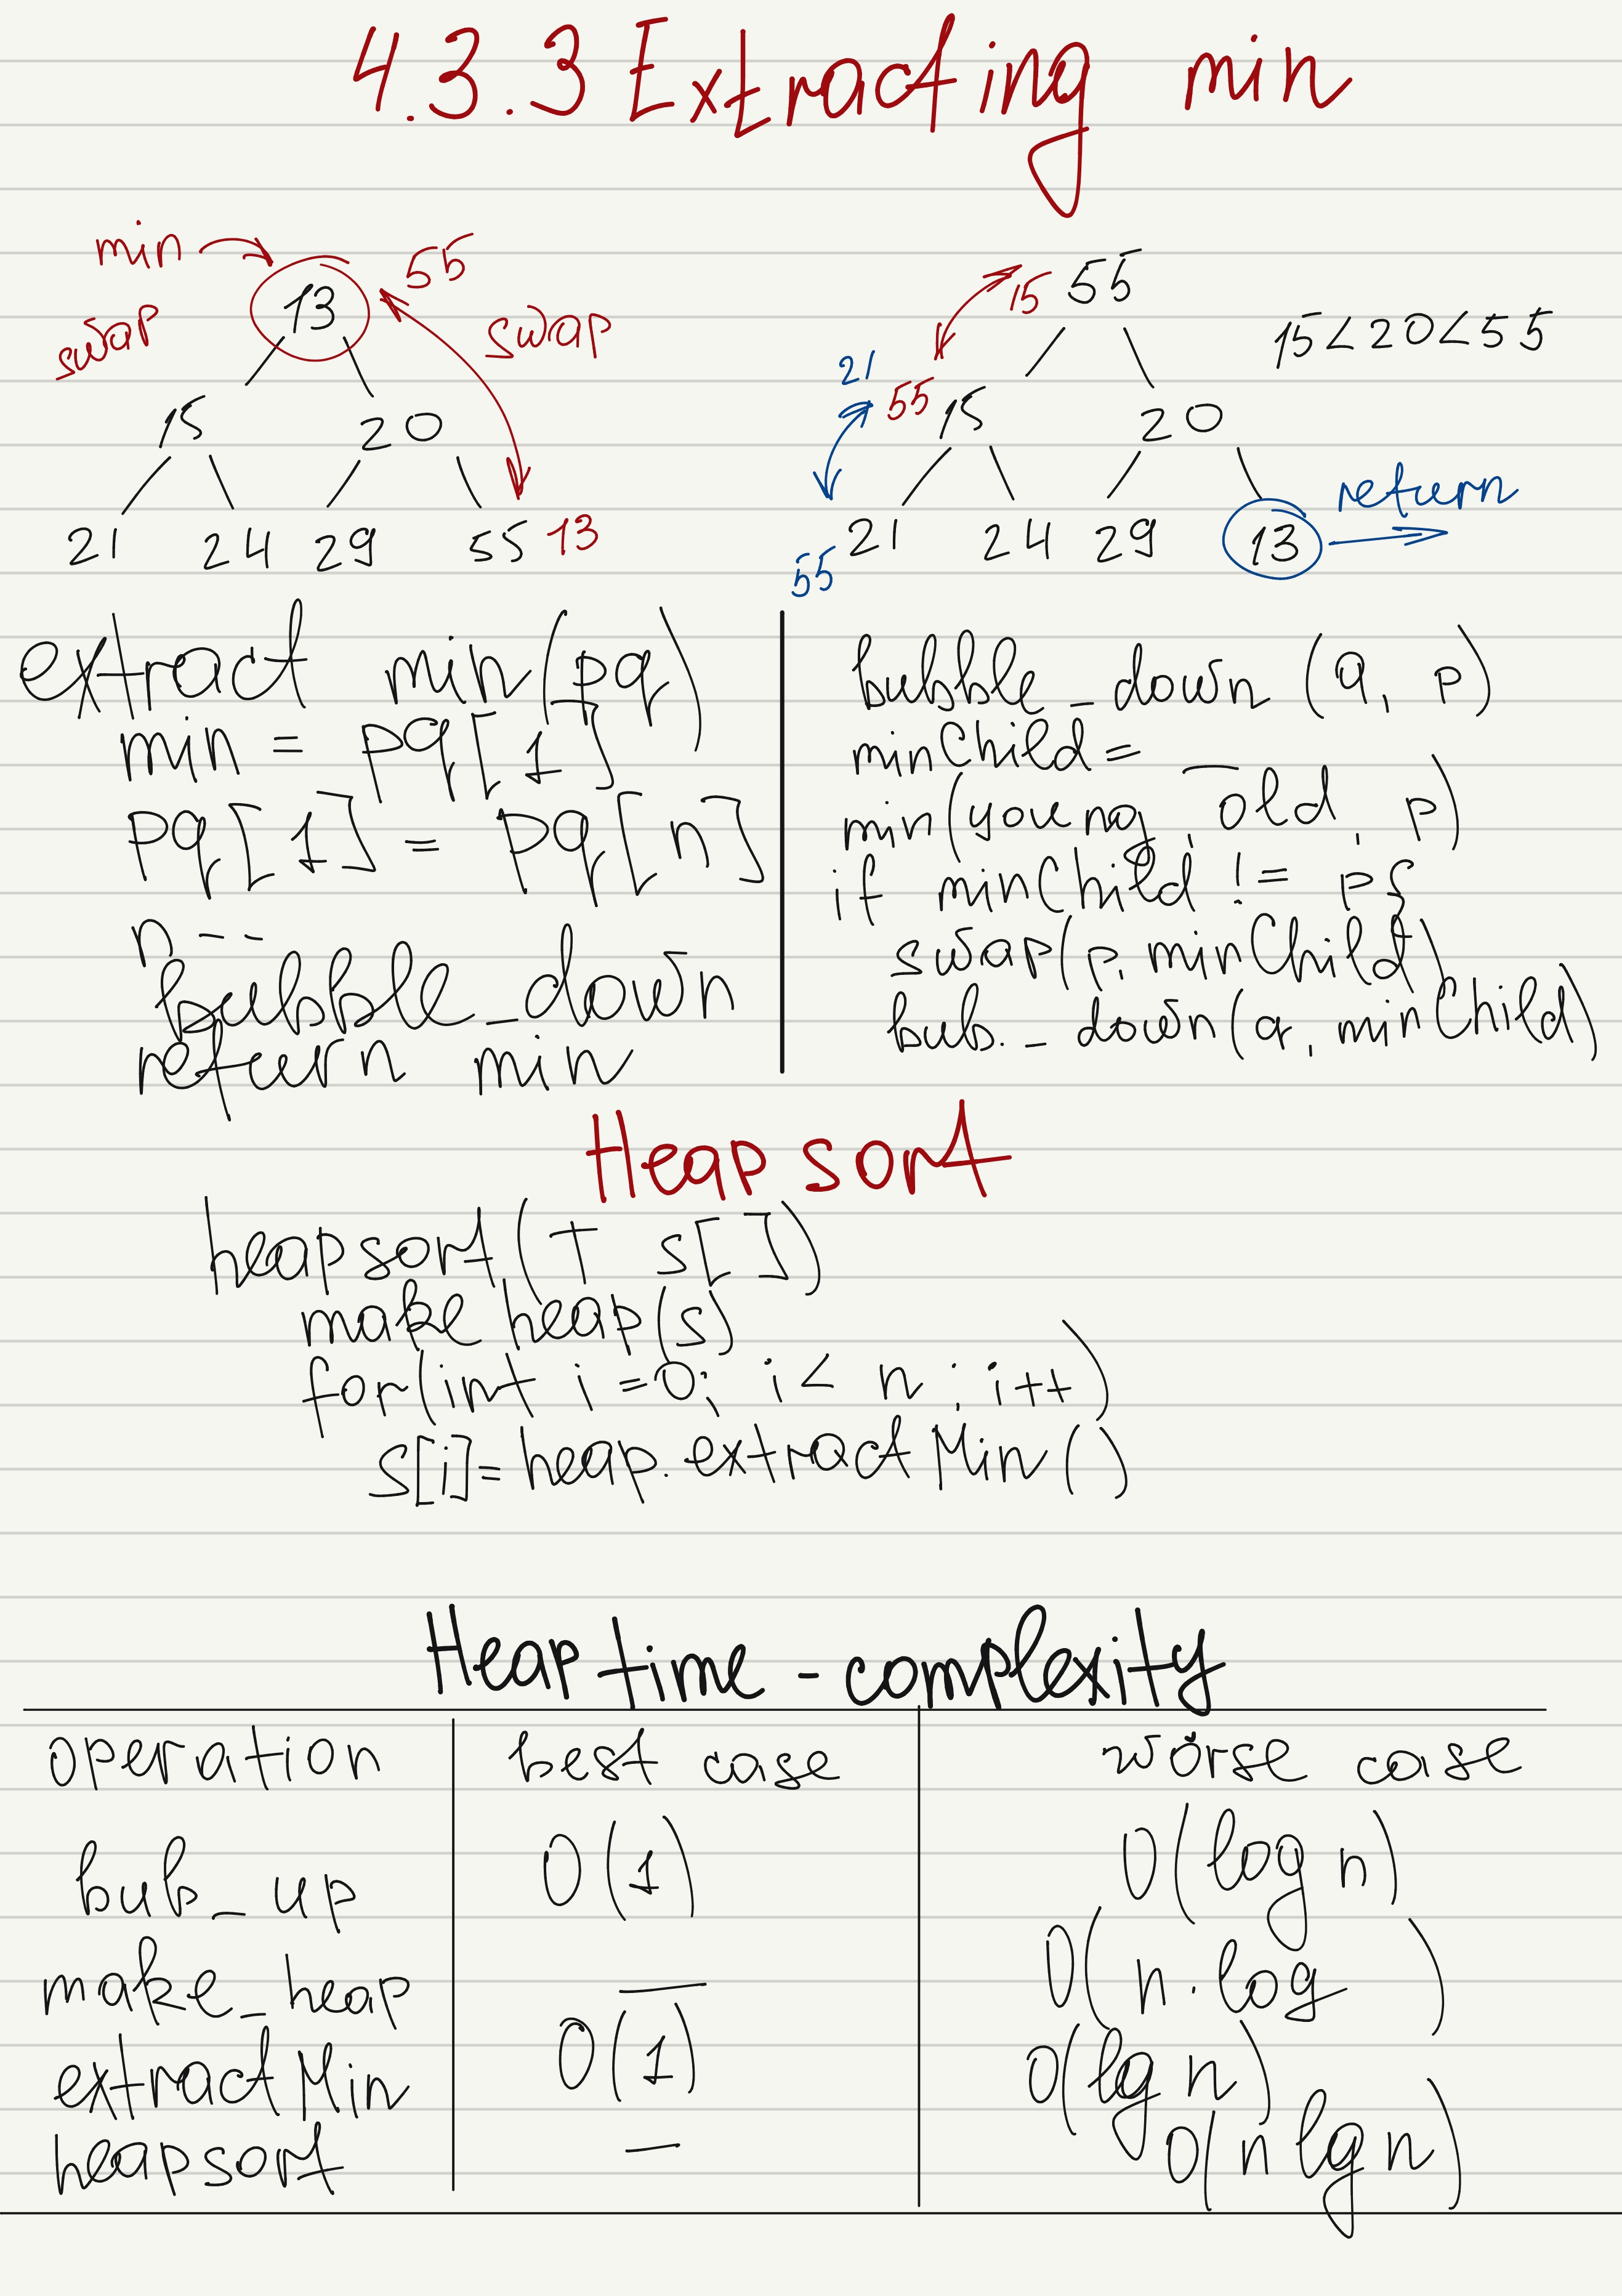 4.3.3 Extracting min
min
55
swap
13
swap
15 20
21 24 29 55 13
15 55
15<20<55
21
55 15 20
return
21 24 29 13
55
extract min(pq)
min = pq[1]
pq[1] = pq[n]
n--
bubble_down
return min
bubble_down (a, p)
minChild=
min(young, old, p)
if minChild != p{
swap(p, minChild)
bub._down(a, minChild)
Heap sort
heapsort(T s[])
make heap(s)
for(int i=0; i< n; i++)
s[i]=heap.extractMin()
Heap time-complexity
operation best case worse case
bub_up O(1) O(log n)
make_heap — O(n·log )
extractMin O(1) O(lg n)
heapsort — O(n lg n)